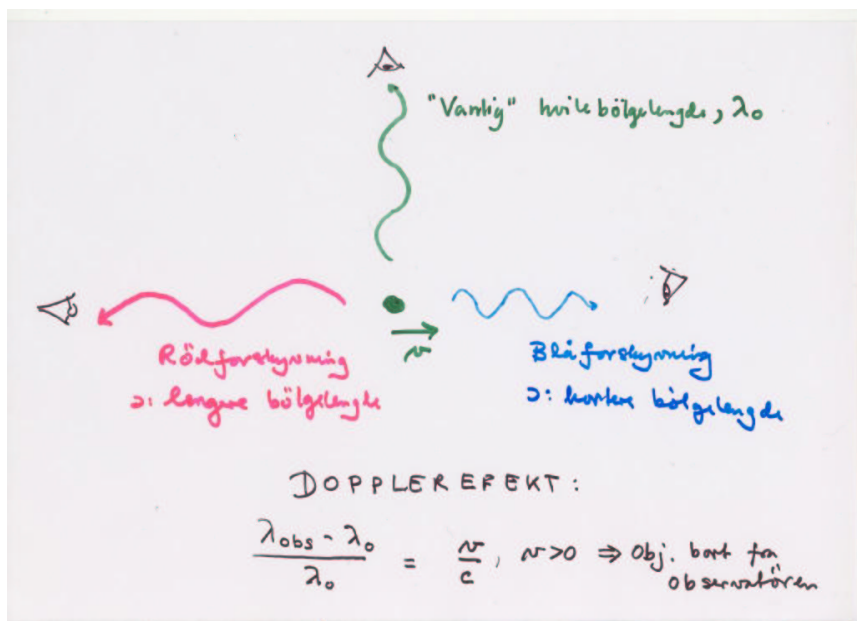 "Vanlig" hvilebölgelengde, λ₀
v
Rödforskyvning
ɔ: lengre bölgelengde
Blåforskyvning
ɔ: kortere bölgelengde
DOPPLEREFEKT:
(λobs - λ₀) / λ₀ = v/c, v>0 ⇒ Obj. bort fra
observatören